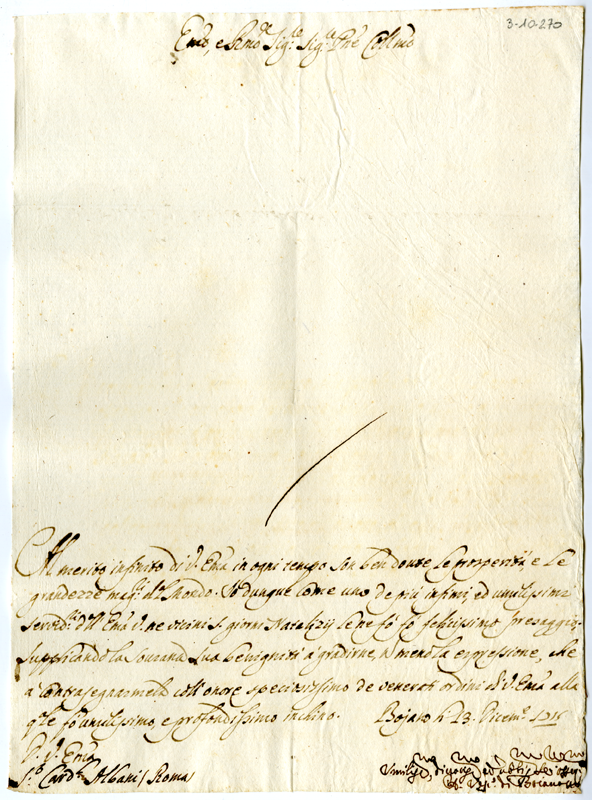 3-10-270
Emo, e Rmo Sigre Sigre Pne Collmo
Al merito infinito di V. Ema in ogni tempo son ben dovute le prosperità e le
grandezze magri del Mondo. Io dunque come uno de più infimi ed umilissimi
servidri dell' Ema V. ne vicini SS. giorni Natalizij le ne fò felicissimo presaggio;
supplicando la sourana sua benignità à gradirne, la espressione, che
a contrasegnarmela coll' onore speciosissimo de venerati ordini di V. Ema alla
qle fò umilissimo e profondissimo inchino. Bojano li 13. Dicemre
D. V. Ema
Sr Cardle Albani / Roma /
Vmiliss.
di Boiano